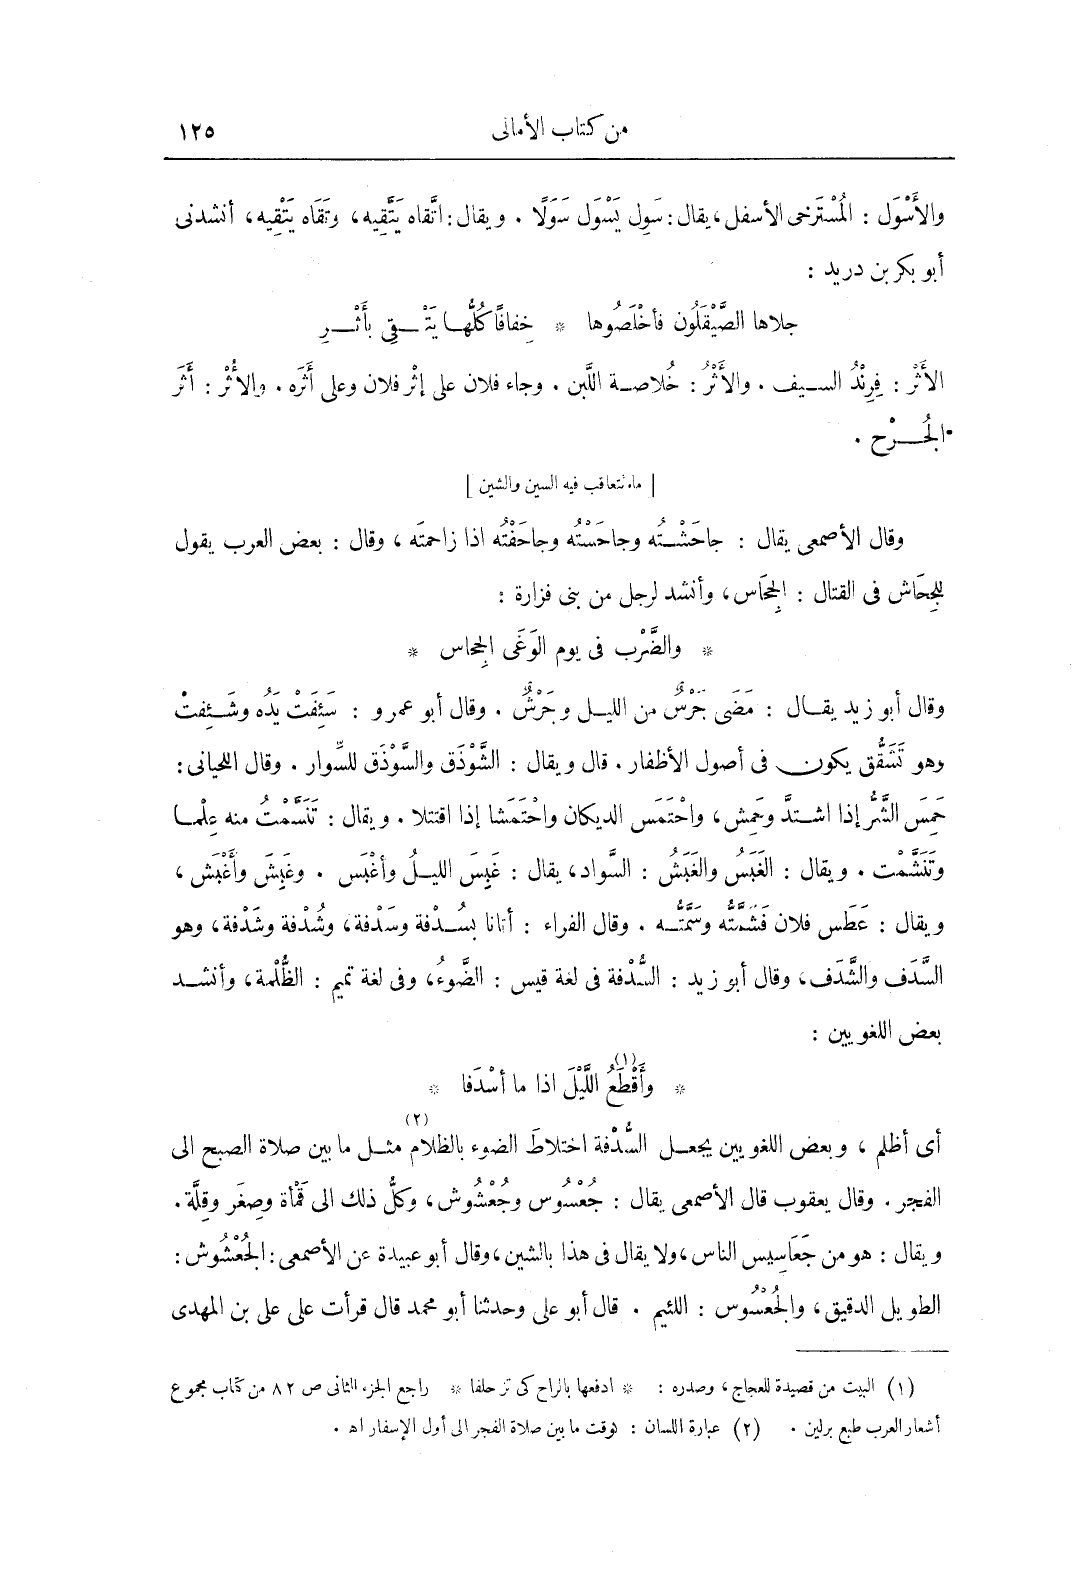 من كتاب الأمالى ١٢٥
والأَسْوَل : المُسْتَرخى الأسفل، يقال: سَوِل يَسْوَل سَوَلًا . ويقال: اتَّقاه يَتَّقِيه، وتَقَاه يَتْقِيه، أنشدنى
أبو بكر بن دريد :
جلاها الصَّيْقَلُون فأخْلَصُوها * خِفافًا كُلُّهـا يَتْـــقِى بأَثْـــرِ
الأَثْرُ : فِرِنْدُ السـيف . والأَثْرُ : خُلاصـة اللَّبن . وجاء فلان على إثْر فلان وعلى أَثَره . والأُثْر : أَثَر
الجُـــرْح .
[ ما تتعاقب فيه السين والشين ]
وقال الأصمعى يقال : جاحَشْـتُه وجاحَسْتُه وجاحَفْتُه اذا زاحمتَه ، وقال : بعض العرب يقول
للجِحَاش فى القتال : الجِحَاس، وأنشد لرجل من بنى فزارة :
* والضَّرْب فى يوم الوَغَى الجِحاس *
وقال أبو زيد يقـال : مَضَى جَرْسٌ من الليـل وجَرْشٌ . وقال أبو عمرو : سَئِفَتْ يَدُه وشَـئِفتْ
وهو تَشَقُّق يكون فى أصول الأظفار . قال ويقال : الشَّوْذَق والسَّوْذَق للسِّوار . وقال اللحيانى :
حَمِسَ الشَّرُّ إذا اشـتدَّ وحَمِش، واحْتَمَس الديكان واحْتَمَشا إذا اقتتلا . ويقال : تَنَسَّمْتُ منه عِلْمـا
وتَنَشَّمْت . ويقال : الغَبَسُ والغَبَشُ : السَّواد، يقال : غَبِسَ الليلُ وأغْبَس . وغَبِشَ وأَغْبَش ،
ويقال : عَطَس فلان فَشَمَّتُّه وسَمَّتُّـه . وقال الفراء : أتانا بسُـدْفة وسَدْفة، وشُدْفة وشَدْفة، وهو
السَّدَف والشَّدَف، وقال أبو زيد : السُّدْفة فى لغة قيس : الضَّوءُ، وفى لغة تميم : الظُّلمة، وأنشـد
بعض اللغويين :
* وأَقْطَعُ(١) اللَّيْلَ اذا ما أَسْدَفا *
أى أظلم ، وبعض اللغويين يجعـل السُّدْفة اختلاطَ الضوء بالظلام(٢) مثـل ما بين صلاة الصبح الى
الفجر . وقال يعقوب قال الأصمعى يقال : جُعْسُوس وجُعْشُوش، وكلُّ ذلك الى قَمْأة وصِغَر وقِلَّة .
ويقال : هو من جَعَاسِيس الناس، ولا يقال فى هذا بالشين، وقال أبو عبيدة عن الأصمعى : الجُعْشُوش :
الطويل الدقيق، والجُعْسُوس : اللئيم . قال أبو على وحدثنا أبو محمد قال قرأت على على بن المهدى
(١) البيت من قصيدة للعجاج، وصدره : * ادفعها بالراح كى تزحلفا * راجع الجزء الثانى ص ٨٢ من كتاب مجموع
أشعار العرب طبع برلين . (٢) عبارة اللسان : لوقت ما بين صلاة الفجر الى أول الإسفار اه .